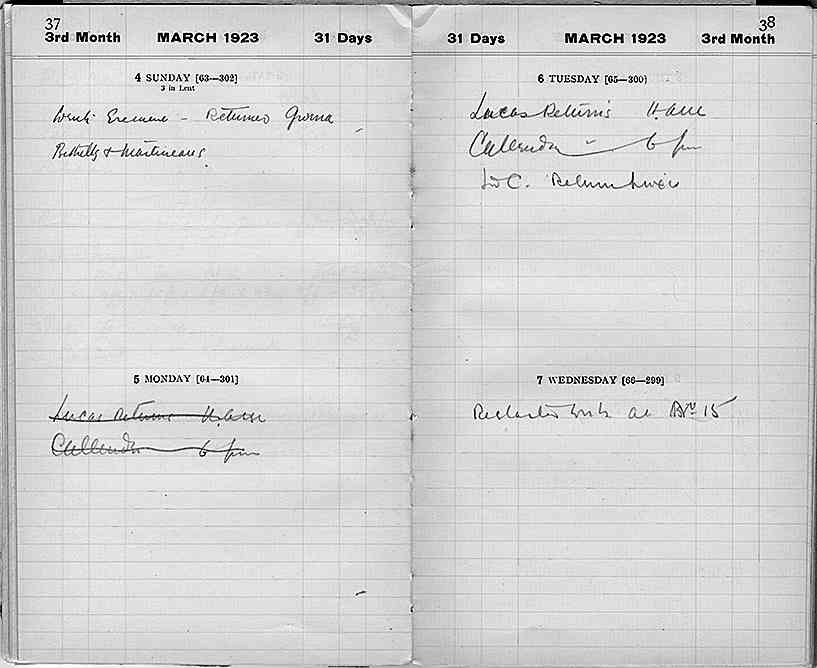 37
3rd Month MARCH 1923 31 Days
4 SUNDAY [63—302]
3 in Lent
Returned Gurna
Bethells & Martineaus
5 MONDAY [64—301]
Lucas returns 11. a.m
Callender 6 pm
38
31 Days MARCH 1923 3rd Month
6 TUESDAY [65—300]
Lucas Returns 11 a.m
Callender " 6 pm
Ld C. Return Luxor
7 WEDNESDAY [66—299]
work at No 15